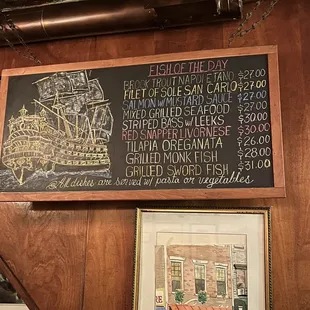 FISH OF THE DAY
BROOK TROUT NAPOLETANO $27.00
FILET OF SOLE SAN CARLO $27.00
SALMON W/ MUSTARD SAUCE $27.00
MIXED GRILLED SEAFOOD $27.00
STRIPED BASS W/ LEEKS $30.00
RED SNAPPER LIVORNESE $30.00
TILAPIA OREGANATA $26.00
GRILLED MONK FISH $28.00
GRILLED SWORD FISH $31.00
All dishes are served w/ pasta or vegetables.